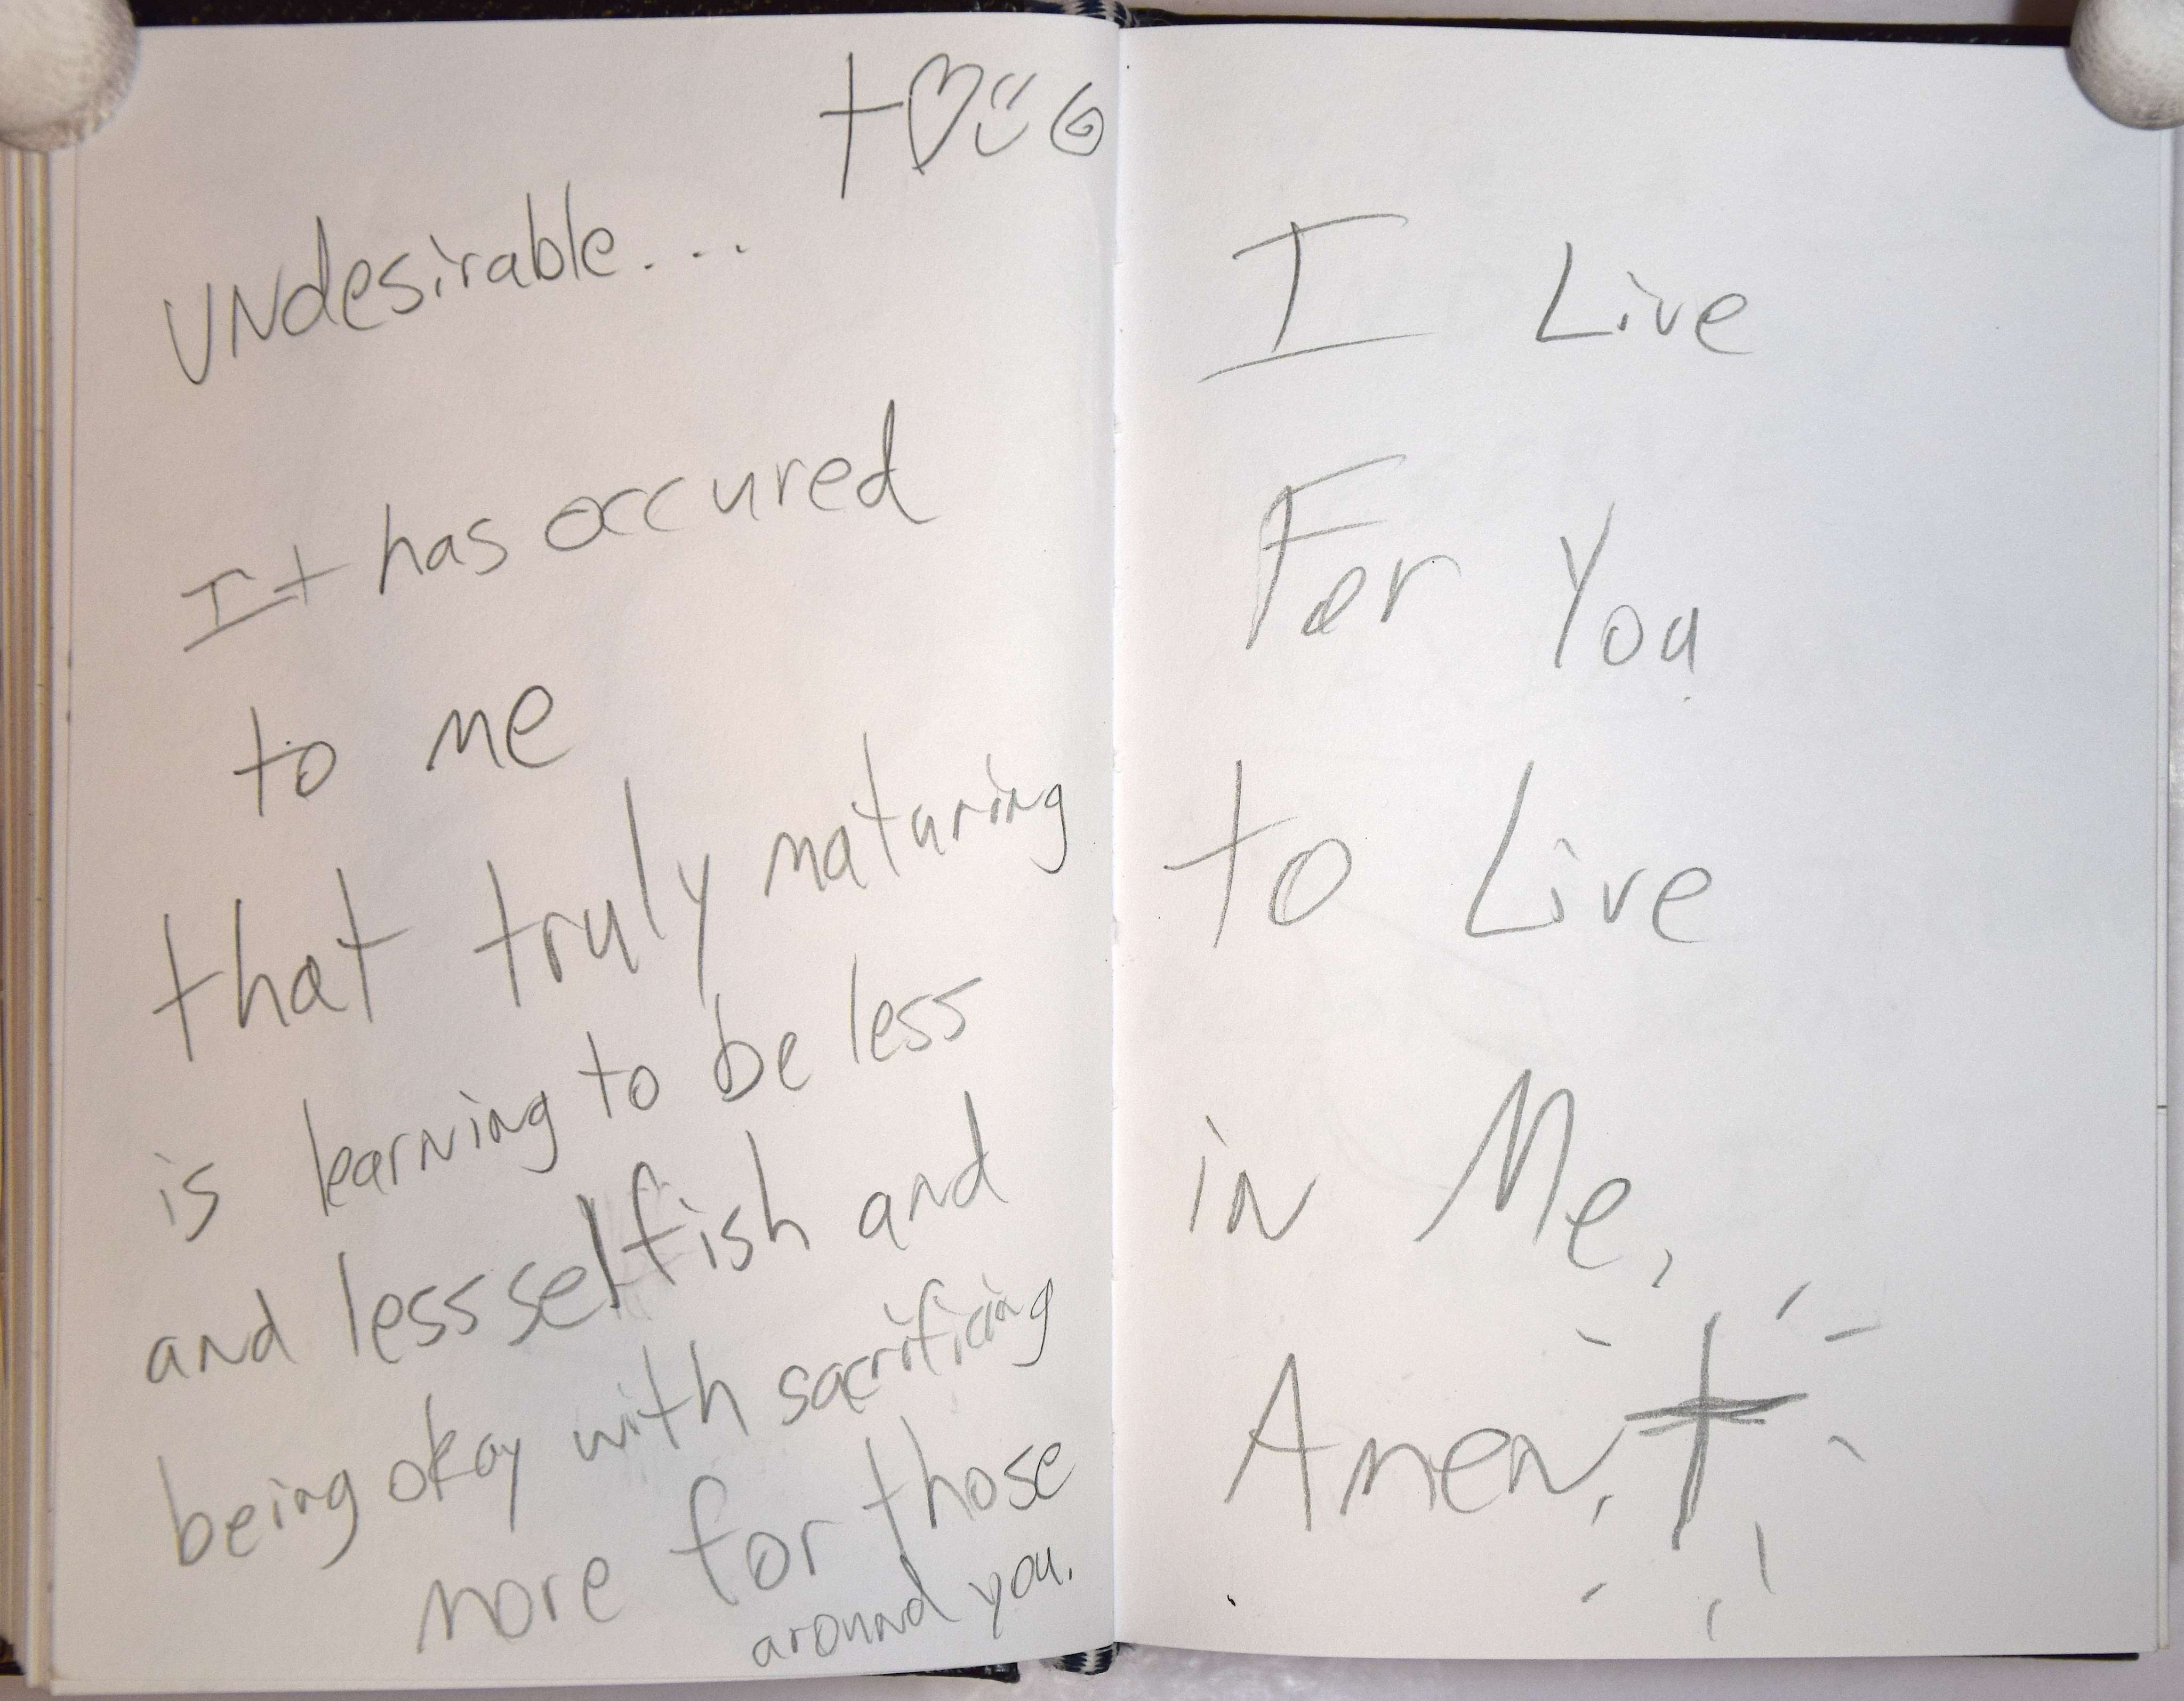 UNdesirable...
It has occured
to me
that truly maturing
is learning to be less
and less selfish and
being okay with sacrificing
more for those
around you.
I Live
For You
to Live
in Me,
Amen.